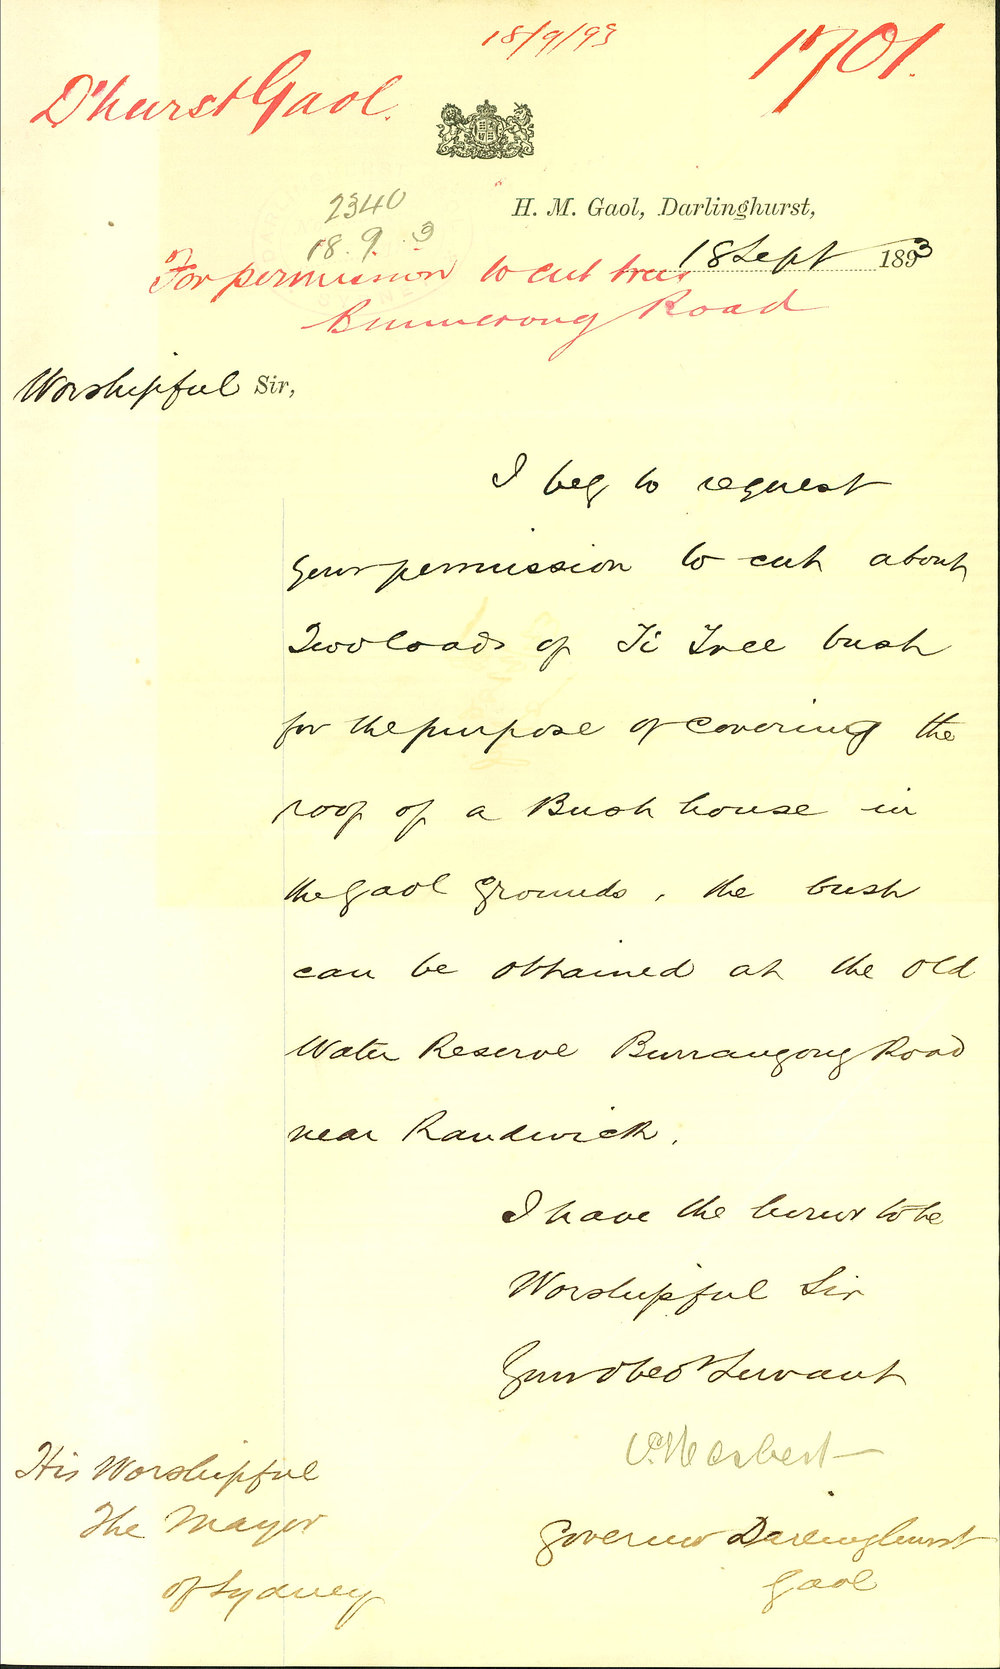 18/9/93
1701.
D'hurst Gaol.
2340
18.9.93
H. M. Gaol, Darlinghurst,
18 Sept 1893
For permission to cut trees
Bunnerong Road
Worshipful Sir,
I beg to request
your permission to cut about
Two loads of Ti Tree bush
for the purpose of covering the
roof of a Bush house in
the Gaol grounds, the bush
can be obtained at the old
Water Reserve Burrangong Road
near Randwick.
I have the honor to be
Worshipful Sir
Your obed Servant
Herbert
Governor Darlinghurst
Gaol
His Worshipful
The Mayor
of Sydney